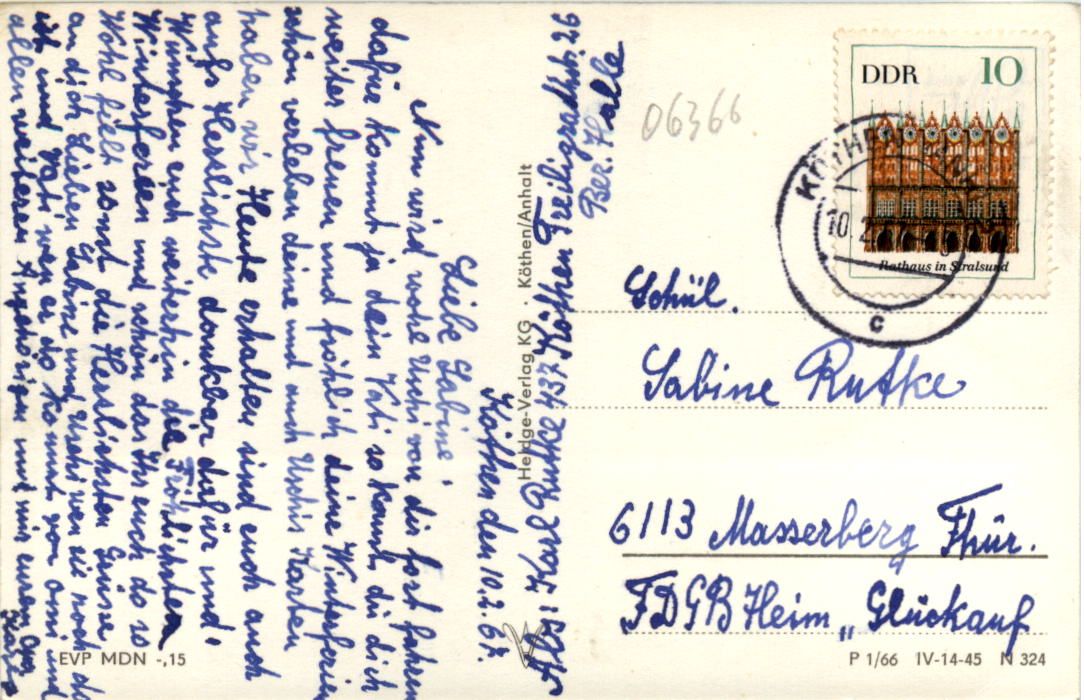 Köthen den 10.2.67.
Liebe Sabine!
Nun wird wohl Uschi von dir fort fahren
dafür kommt ja dein Vati so kannst du dich
weiter freuen und fröhlich deine Winterferien
schön verleben deine und auch Uschis Karten
haben wir Heute erhalten sind euch auch
aufs Herzlichste dankbar dafür und
Wünschen euch weiterhin die Fröhlichsten
Winterferien und schön das Ihr euch do so
Wohl fielt sonst die Herzlichsten Grüsse
an dich lieben Sabine und Uschi wen sie noch da
ist und Vati wen er do kommt von Omi und
allen weiteren Angehörigen und mir euren Opa
Karl
Abs: Karl Rutke 437 Köthen Freiligradhstr. 26
Bez. Halle
Heldge-Verlag KG · Köthen/Anhalt
06366
DDR 10
Rathaus in Stralsund
10.2.
c
Schül.
Sabine Rutke
6113 Masserberg Thür.
FDGB Heim „Glückauf
EVP MDN -,15
P 1/66 IV-14-45 N 324